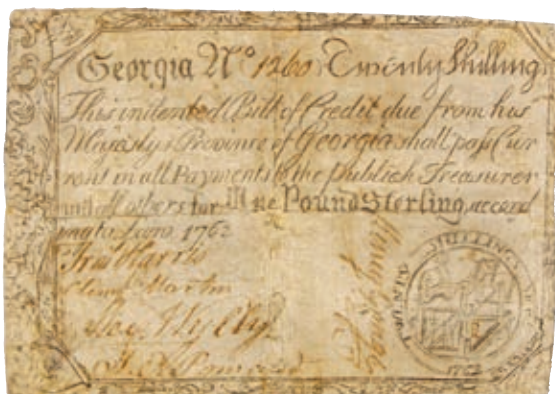 Georgia No 1260 Twenty Shilling
This indented Bill of Credit due from his
Majestys Province of Georgia shall pass Cur
rent in all Payments to the Publick Treasurer
and all others for One Pound Sterling, accord
ing to Law. 1762
Clemt Martin
TWENTY SHILLINGS
1762